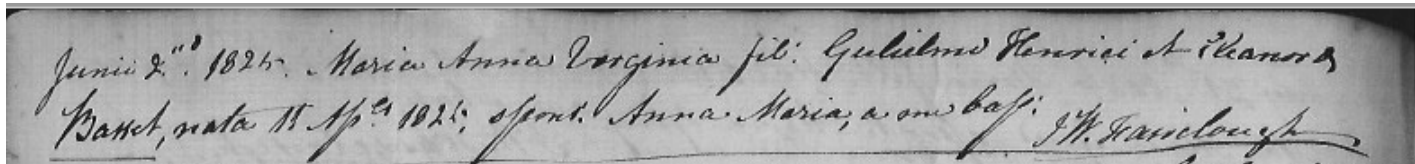 Junii 2.nd 1825. Maria Anna Verginia fil: Gulielmi Henrici et Eleanora
Basset, nata 15 Ap.les 1825, spons. Anna Maria, a me bap: J W. Fairclough